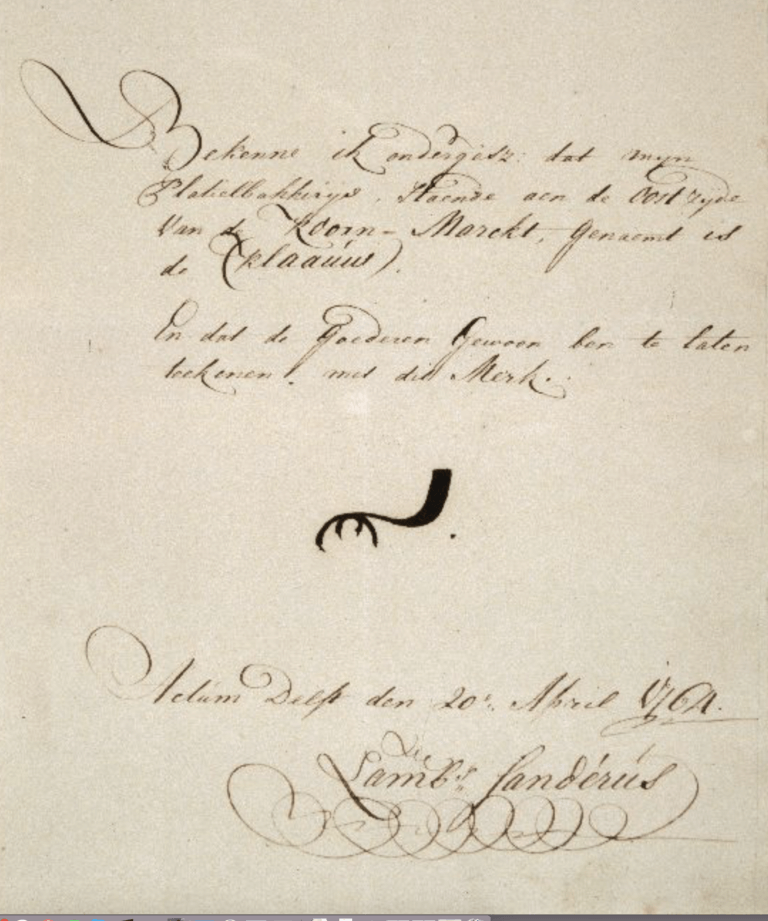 Bekenne ik ondergesz: dat myn
Platielbakkerye, Staende aen de oost zyde
van de Koorn-Marckt, genaemt is
de (klaauw).
En dat de goederen gewoon ben te laten
teekenen, met dit Merk.
Actum Delft den 20e April 1764.
Lambs. Sanderus